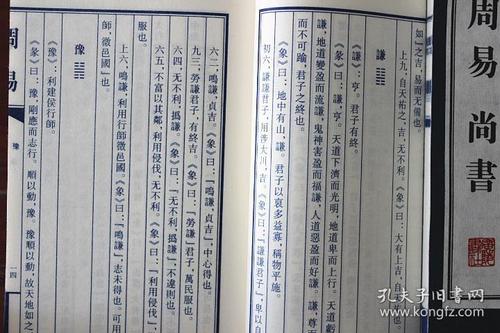 周易 尚書
如」之吉,易而无備也。
上九:自天祐之,吉,无不利。《象》曰:大有上吉,自天祐也
謙 ䷎
《謙》:亨。君子有終。
《彖》曰:謙,亨。天道下濟而光明,地道卑而上行。天道虧
謙,地道變盈而流謙,鬼神害盈而福謙,人道惡盈而好謙。謙,尊
而不可踰,君子之終也。
《象》曰:地中有山,謙。君子以裒多益寡,稱物平施。
初六:謙謙君子,用涉大川,吉。《象》曰:「謙謙君子」,卑以自
六二:鳴謙,貞吉。《象》曰:「鳴謙,貞吉」,中心得也。
九三:勞謙君子,有終,吉。《象》曰:「勞謙」君子,萬民服也。
六四:无不利,撝謙。《象》曰:「无不利,撝謙」,不違則也。
六五:不富以其鄰,利用侵伐,无不利。《象》曰:「利用侵伐」,
服也。
上六:鳴謙,利用行師,徵邑國。《象》曰:「鳴謙」,志未得也。可用
師,徵邑國也。
豫 ䷏
《豫》:利建侯行師。
《彖》曰:豫,剛應而志行,順以動,豫。豫順以動,故天地如之
周易
豫
一四
孔夫子旧书网